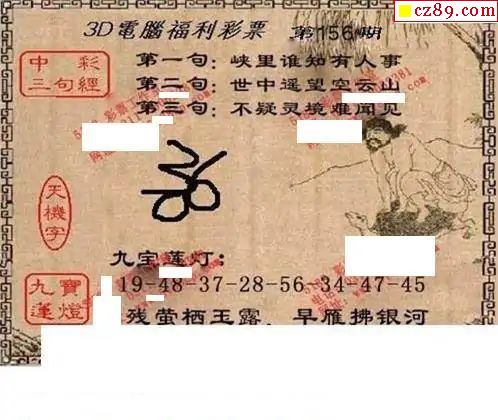 cz89.com
3D電腦福利彩票 第156期
中彩三句經
第一句:峡里谁知有人事
第二句:世中遥望空云山
第三句:不疑灵境难闻见
天機字
九宝莲灯:
九寶蓮燈
19-48-37-28-56-34-47-45
残萤栖玉露,早雁拂银河